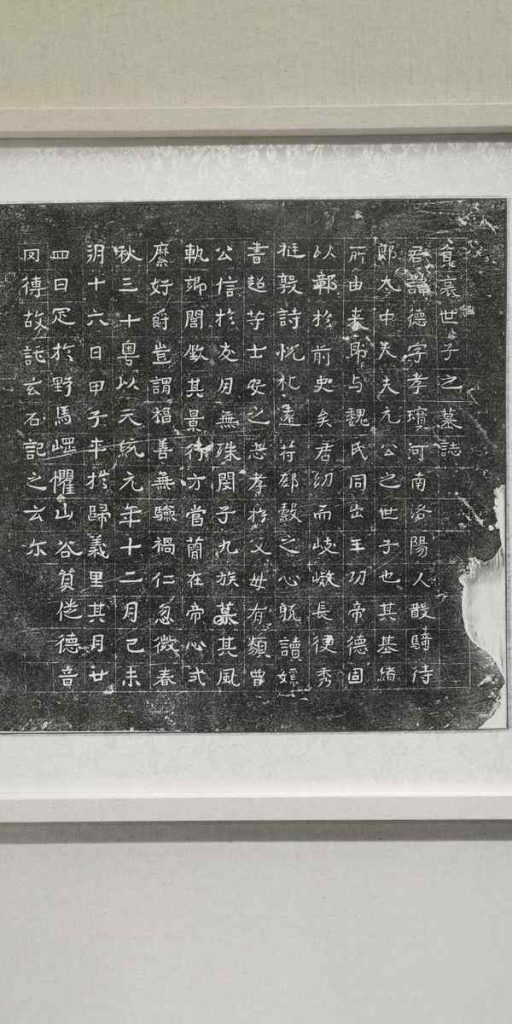 貟哀世子之墓誌
君諱德字孝瓆河南洛陽人散騎待
郎太中大夫元公之世子也其基緒
所由奏即与魏氏同出王功帝德固
以鄣於前史矣君幼而岐嶷長便秀
挺敦詩悅礼遠符郄縠之心躭讀
書超等士安之志孝於父母有類曾
公信於友用無殊閔子九族慕其風
軌鄉閭欽其景行方當蕳在帝心式
縻好爵豈謂福善無驗禍仁忽徵春
秋三十粵以元統元年十二月己未
朔十六日甲子卒於歸義里其月廿
四日定於野馬崿懼山谷貿徙德音
冈傳故託玄石記之云尓